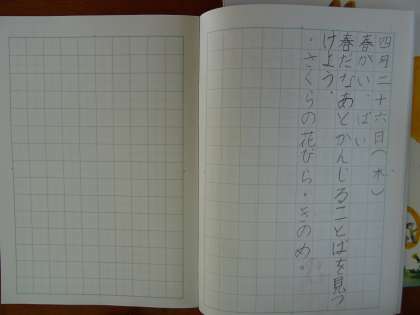 四月二十六日(木)
春がい、ぱい
春だなあとかんじることばを見つ
けよう。
・さくらの花びら・きのめ・